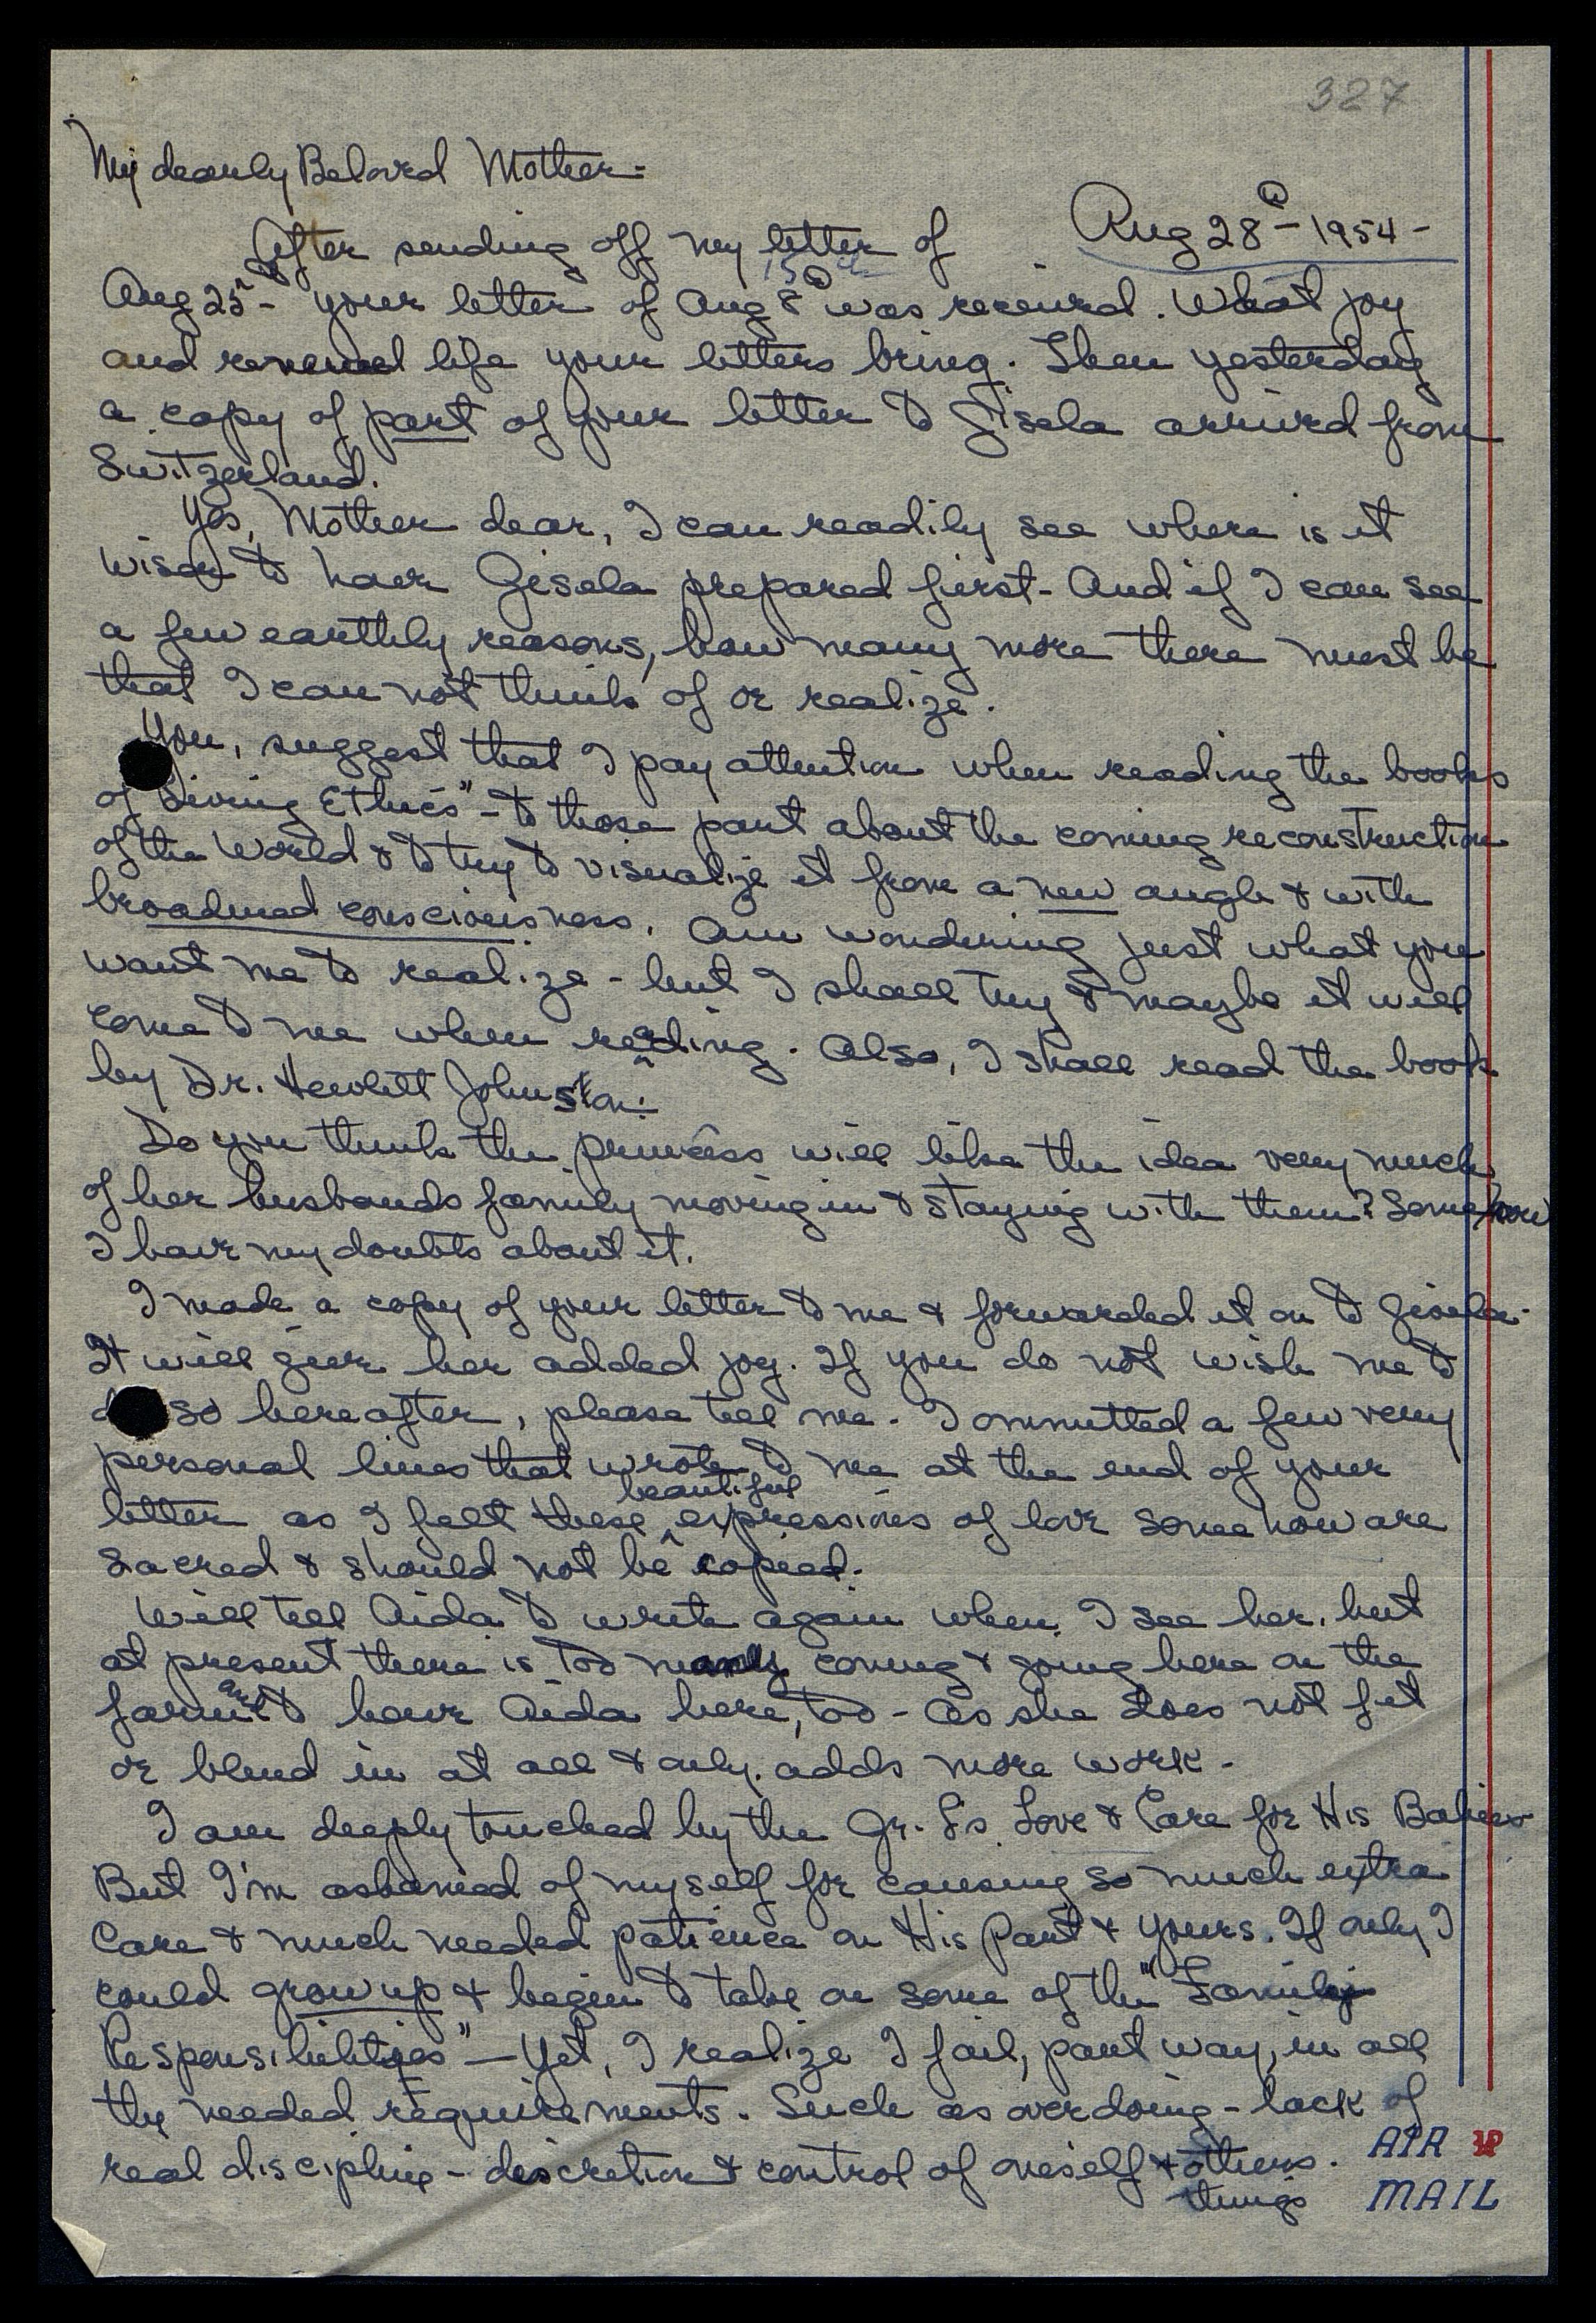 327
My dearly Beloved Mother-
Aug 28th - 1954 -
After sending off my letter of
Aug 25th - your letter of Aug 8th was received. What joy
and renewed life your letters bring. Then yesterday
a copy of part of your letter to Gisela arrived from
Switzerland.
Yes, Mother dear, I can readily see where is it
wiser to have Gisela prepared first - And if I can see
a few earthly reasons, how many more there must be
that I can not think of or realize.
You, suggest that I pay attention when reading the books
of "Living Ethics" - to those part about the coming reconstruction
of the World & to try to visualize it from a new angle & with
broadened consciousness. Am wondering just what you
want me to realize - but I shall try & maybe it will
come to me when reading. Also, I shall read the book
by Dr. Hewlett Johnston.
Do you think the princess will like the idea very much
of her husbands family moving in & staying with them? Somehow
I have my doubts about it.
I made a copy of your letter to me & forwarded it on to Gisela.
It will give her added joy. If you do not wish me to
do so hereafter, please tell me. I ommitted a few very
personal lines that wrote to me at the end of your
letter as I felt these beautiful expressions of love somehow are
sacred & should not be copied.
Will tell Aida to write again when I see her, but
at present there is too many coming & going here on the
farm and to have Aida here, too - as she does not fit
or blend in at all & only adds more work -
I am deeply touched by the Gr. L's Love & Care for His Babies
But I'm ashamed of myself for causing so much extra
Care & much needed patience on His Part & yours. If only I
could grow up & begin to take on some of the "Family
Responsibilities" - Yet, I realize I fail, part way, in all
the needed requirements. Such as overdoing - lack of
real discipline - discretion & control of oneself & others.
things
AIR
MAIL